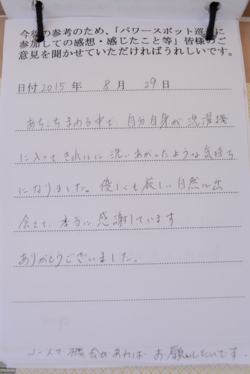 今後の参考のため、「パワースポット巡りに
参加しての感想・感じたこと等」皆様のご
意見を聞かせていただければうれしいです。
日付 2015 年 8 月 29 日
あちこちまわる中で、自分自身が洗濯機
に入ってきれいに洗いあがったような気持ち
になりました。優しくも厳しい自然に出
会えて、本当に感謝しています
ありがとうございました。
機会があれば お願いしたいです。